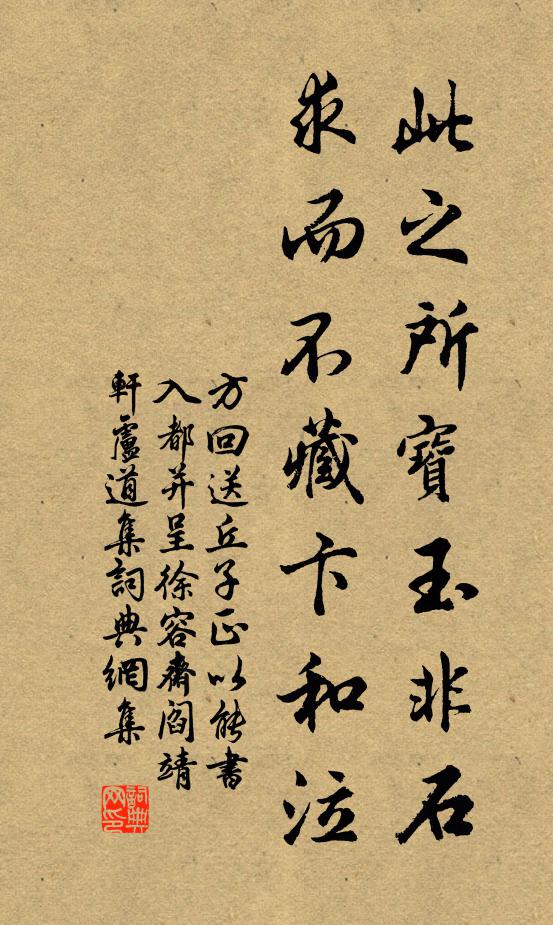 此之所寶玉非石
求而不藏卞和泣
方回送丘子正以能書
入都并呈徐容齋閻靖
軒盧道集詞典網集
詞典網印